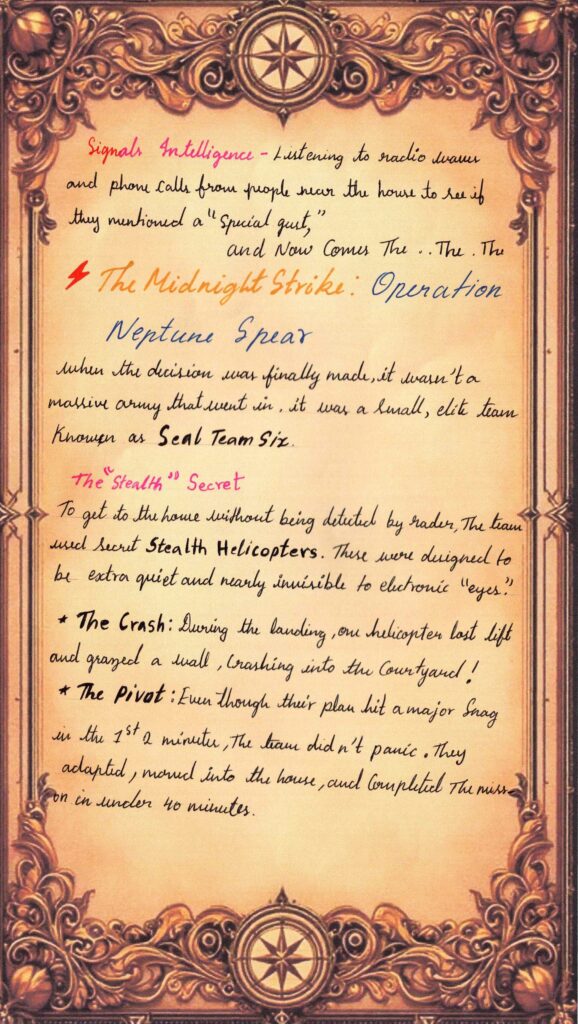 Signals Intelligence - Listening to radio waves
and phone calls from people near the house to see if
they mentioned a "Special gust,"
and Now Comes The .. The . The
⚡ The Midnight Strike: Operation
Neptune Spear
when the decision was finally made, it wasn't a
massive army that went in. it was a small, elite team
Known as Seal Team Six.
The "Stealth" Secret
To get to the home without being detected by rader, The team
used secret Stealth Helicopters. These were designed to
be extra quiet and nearly invisible to electronic "eyes."
* The Crash: During the landing, one helicopter lost lift
and grazed a wall, Crashing into the Courtyard!
* The Pivot: Even though their plan hit a major Snag
in the 1st 2 minutes, The team didn't panic. They
adapted, moved into the house, and Completed The miss-
on in under 40 minutes.